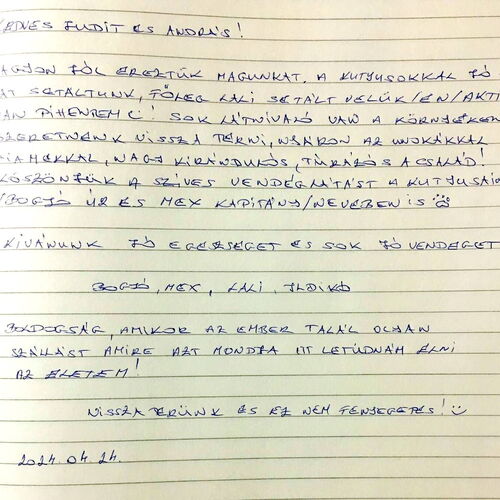 EDVES JUDIT ÉS ANDRÁS!
AGYON JÓL ÉREZTÜK MAGUNKAT. A KUTYUSOKKAL JÓ
AT SÉTÁLTUNK, FŐLEG LALI SÉTÁLT VELÜK/ÉN/AKTI
AN PIHENTEM! SOK LÁTNIVALÓ VAN A KÖRNYÉKEN
SZERETNÉNK VISSZA TÉRNI, NYÁRON AZ UNOKÁKKAL
NAGY KIRÁNDULÓS, TÚRÁZÓS A CSALÁD!
KÖSZÖNJÜK A SZÍVES VENDÉGLÁTÁST A KUTYUSAI
/BOGJÓ ÚR ÉS MEX KAPITÁNY/NEVÉBEN IS
KÍVÁNUNK JÓ EGÉSZSÉGET ÉS SOK JÓ VENDÉGET
BOGJÓ, MEX, LALI, ILDIKÓ
BOLDOGSÁG, AMIKOR AZ EMBER TALÁL OLYAN
SZÁLLÁST AMIRE AZT MONDJA ITT LETUDNÁM ÉLNI
AZ ÉLETEM!
VISSZA TÉRÜNK ÉS EZ NEM FENYEGETÉS! :)
2024.04.24.